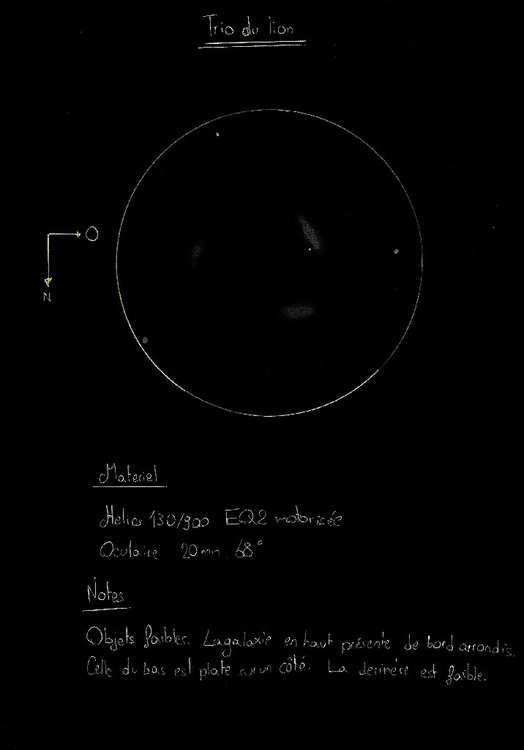 Trio du lion
O
N
Materiel
Helios 130/900 EQ2 motorisée
Oculaire 20mm 68°
Notes
Objets faibles. La galaxie en haut présente de bord arrondis.
Celle du bas est plate sur un côté. La derinère est faible.